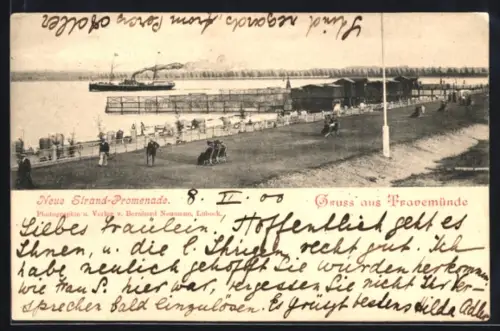 Kind regards, from Percy Adler
Neue Strand-Promenade.
8. II. 00
Gruss aus Travemünde
Photographie u. Verlag v. Bernhard Nöhring, Lübeck.
Liebes Fräulein! Hoffentlich geht es
Ihnen, u. die l. Ihrigen recht gut. Ich
habe neulich gehofft Sie würden herkommen
wie Frau P. hier war, vergessen Sie nicht Ihr Ver-
sprecher bald einzulösen. Es grüsst bestens Hilda Adler